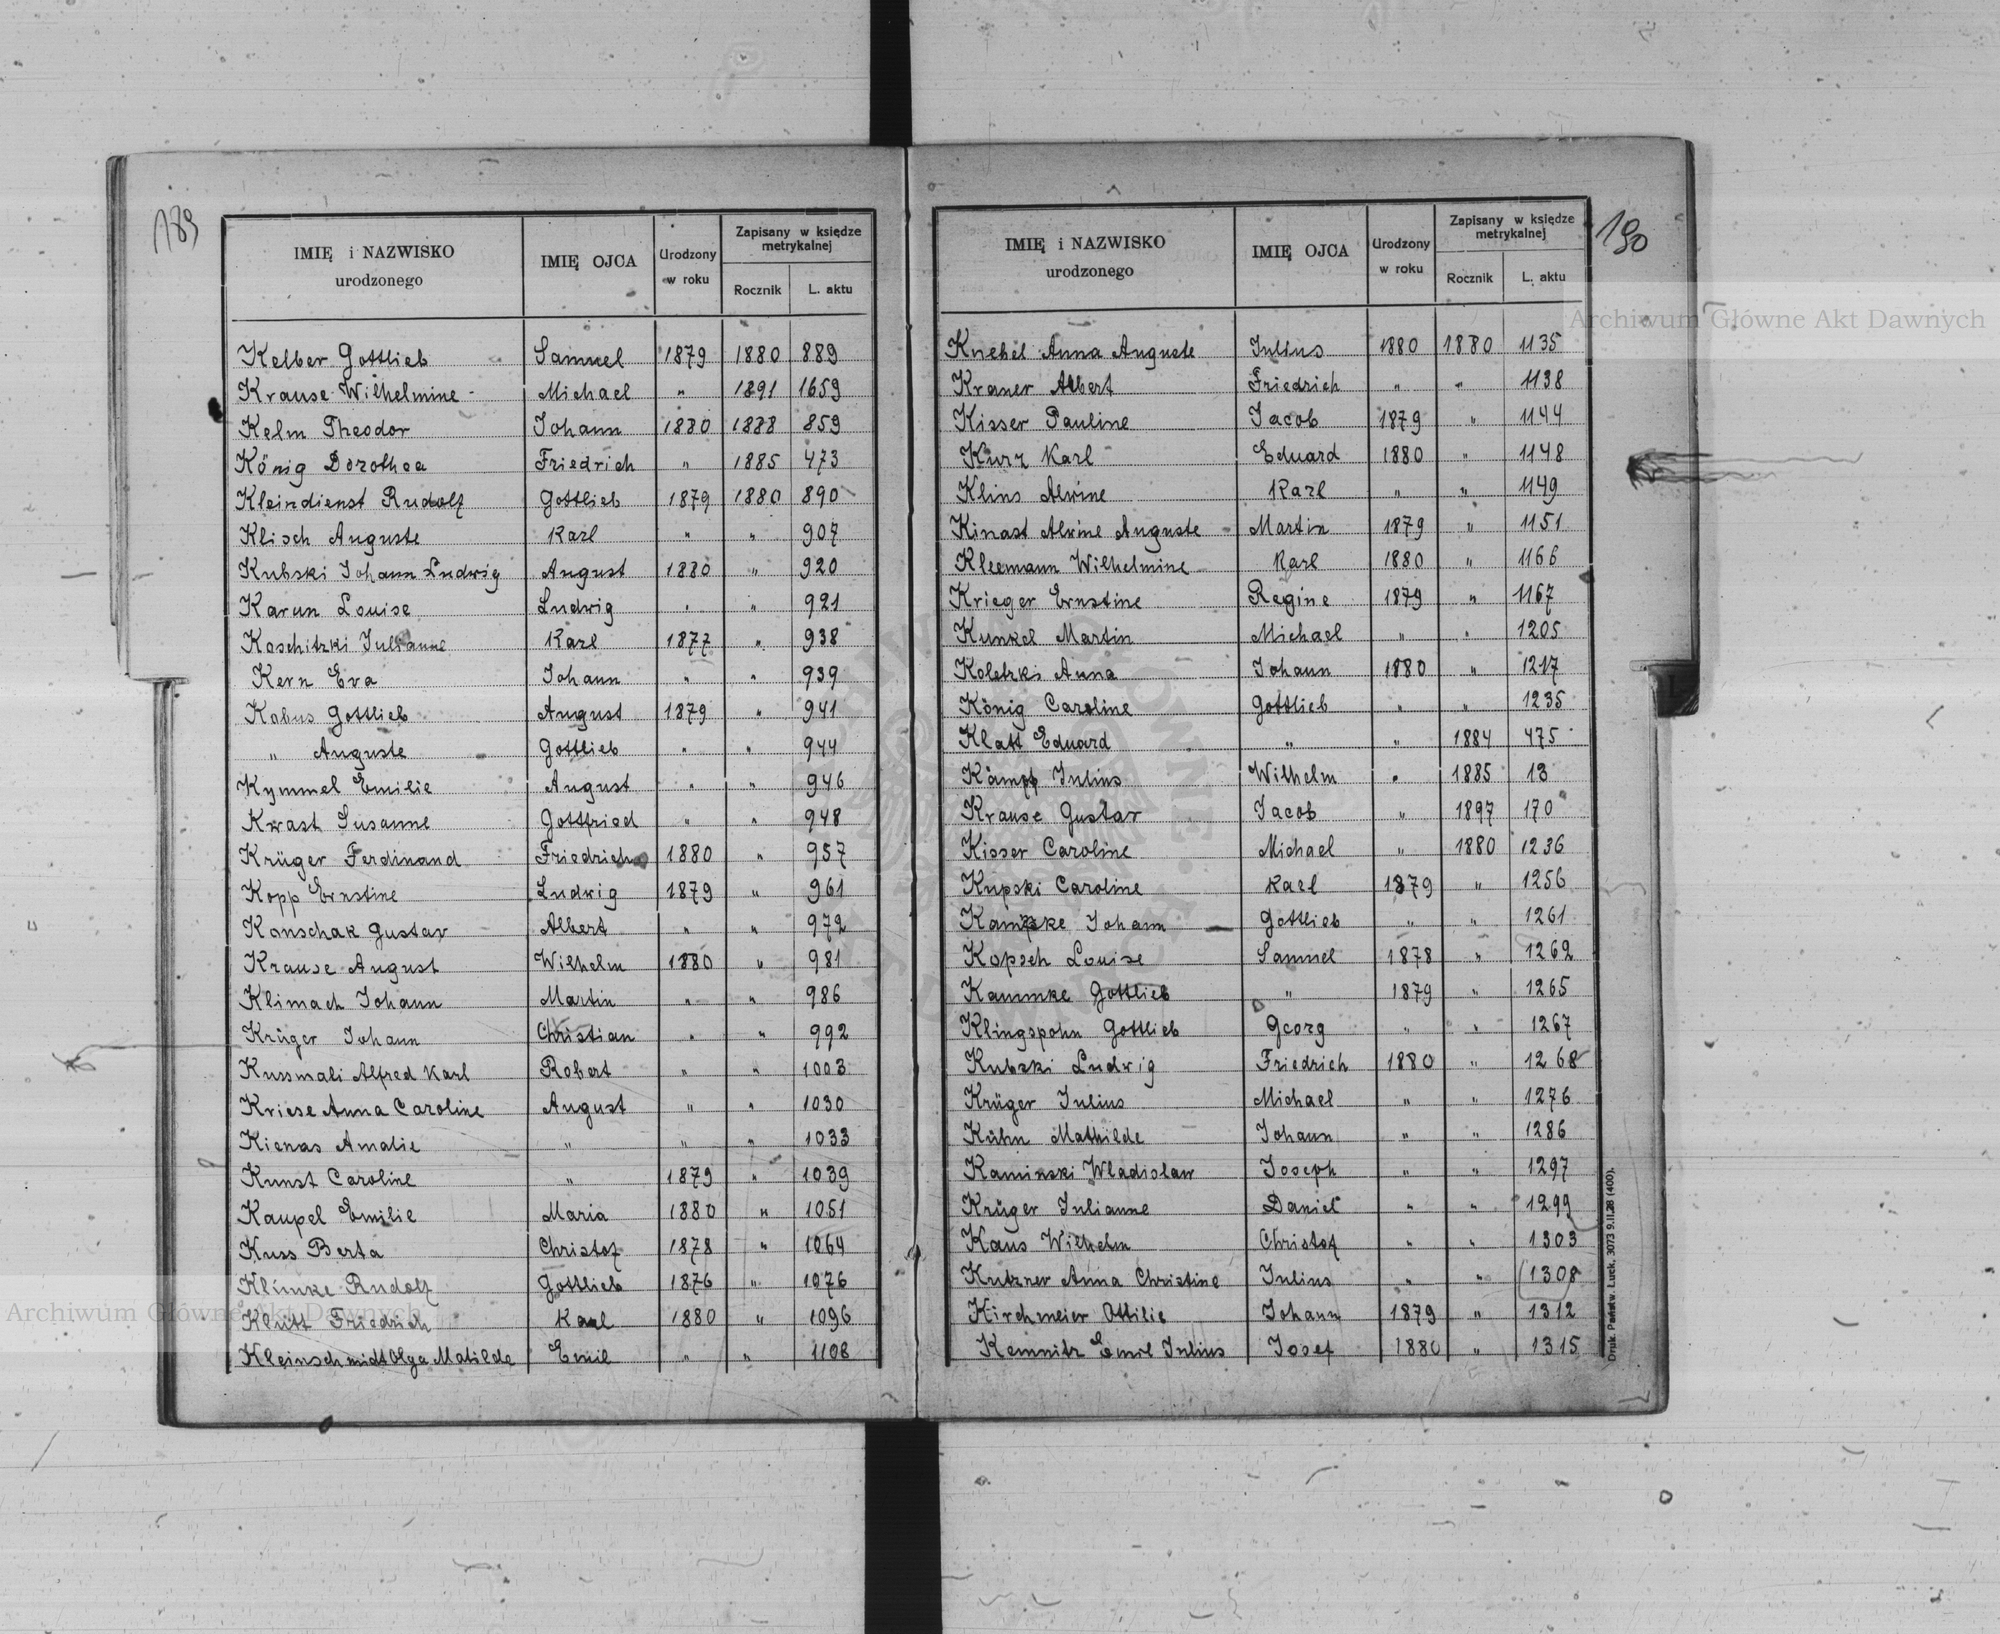 189
IMIĘ i NAZWISKO urodzonego | IMIĘ OJCA | Urodzony w roku | Zapisany w księdze metrykalnej
Rocznik | L. aktu
Kelber Gottlieb | Samuel | 1879 | 1880 | 889
Krause Wilhelmine | Michael | " | 1891 | 1659
Kelm Theodor | Johann | 1880 | 1888 | 859
König Dorothea | Friedrich | " | 1885 | 473
Kleindienst Rudolf | Gottlieb | 1879 | 1880 | 890
Klisch Auguste | Karl | " | " | 907
Kubski Johann Ludwig | August | 1880 | " | 920
Karun Louise | Ludwig | " | " | 921
Koschitzki Julianne | Karl | 1877 | " | 938
Kern Eva | Johann | " | " | 939
Kobus Gottlieb | August | 1879 | " | 941
" Auguste | Gottlieb | " | " | 944
Kymmel Emilie | August | " | " | 946
Kwast Susanne | Gottfried | " | " | 948
Krüger Ferdinand | Friedrich | 1880 | " | 957
Kopp Ernstine | Ludwig | 1879 | " | 961
Konschak Gustav | Albert | " | " | 972
Krause August | Wilhelm | 1880 | " | 981
Klimach Johann | Martin | " | " | 986
Krüger Johann | Christian | " | " | 992
Kussmali Alfred Karl | Robert | " | " | 1003
Kriese Anna Caroline | August | " | " | 1030
Kienas Amalie | " | " | " | 1033
Kunst Caroline | " | 1879 | " | 1039
Kaupel Emilie | Maria | 1880 | " | 1051
Kuss Berta | Christof | 1878 | " | 1064
Klimke Rudolf | Gottlieb | 1876 | " | 1076
Klütt Friedrich | Karl | 1880 | " | 1096
Kleinschmidt Olga Matilde | Emil | " | " | 1108
190
IMIĘ i NAZWISKO urodzonego | IMIĘ OJCA | Urodzony w roku | Zapisany w księdze metrykalnej
Rocznik | L. aktu
Knebel Anna Auguste | Julius | 1880 | 1880 | 1135
Kraner Albert | Friedrich | " | " | 1138
Kisser Pauline | Jacob | 1879 | " | 1144
Kurz Karl | Eduard | 1880 | " | 1148
Klins Alwine | Karl | " | " | 1149
Kinast Alvine Auguste | Martin | 1879 | " | 1151
Kleemann Wilhelmine | Karl | 1880 | " | 1166
Krieger Ernstine | Regine | 1879 | " | 1167
Kunkel Martin | Michael | " | " | 1205
Koletzki Anna | Johann | 1880 | " | 1217
König Caroline | Gottlieb | " | " | 1235
Klatt Eduard | " | " | 1884 | 475
Kämpf Julius | Wilhelm | " | 1885 | 13
Krause Gustav | Jacob | " | 1897 | 170
Kisser Caroline | Michael | " | 1880 | 1236
Kupski Caroline | Karl | 1879 | " | 1256
Kampke Johann | Gottlieb | " | " | 1261
Kopsch Louise | Samuel | 1878 | " | 1262
Kammke Gottlieb | " | 1879 | " | 1265
Klingspohn Gottlieb | Georg | " | " | 1267
Kubski Ludwig | Friedrich | 1880 | " | 1268
Krüger Julius | Michael | " | " | 1276
Kühn Mathilde | Johann | " | " | 1286
Kaminski Wladislaw | Joseph | " | " | 1297
Krüger Julianne | Daniel | " | " | 1299
Kaus Wilhelm | Christof | " | " | 1303
Kutzner Anna Christine | Julius | " | " | 1308
Kirchmeier Ottilie | Johann | 1879 | " | 1312
Kemnitz Emil Julius | Josef | 1880 | " | 1315
Druk. Państw. Łuck. 3073 9.II.28 (400).
Archiwum Główne Akt Dawnych
Archiwum Główne Akt Dawnych